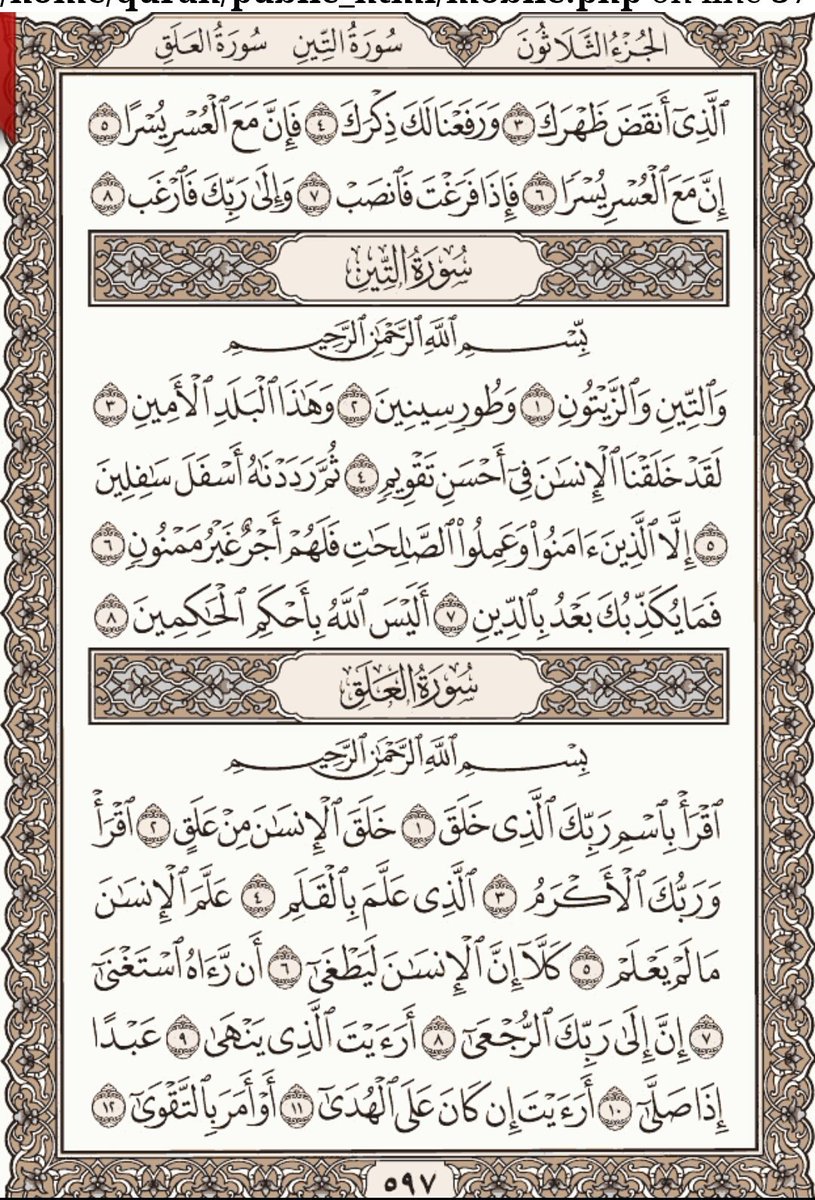 /home/quran/public_html/mobile.php on line 37
الجُزْءُ الثَّلَاثُونَ سُورَةُ التِّينِ سُورَةُ العَلَقِ
ٱلَّذِىٓ أَنقَضَ ظَهْرَكَ ٣ وَرَفَعْنَا لَكَ ذِكْرَكَ ٤ فَإِنَّ مَعَ ٱلْعُسْرِ يُسْرًا ٥
إِنَّ مَعَ ٱلْعُسْرِ يُسْرًا ٦ فَإِذَا فَرَغْتَ فَٱنصَبْ ٧ وَإِلَىٰ رَبِّكَ فَٱرْغَب ٨
سُورَةُ التِّينِ
بِّسْمِ ٱللَّهِ ٱلرَّحْمَٰنِ ٱلرَّحِيمِ
وَٱلتِّينِ وَٱلزَّيْتُونِ ١ وَطُورِ سِينِينَ ٢ وَهَٰذَا ٱلْبَلَدِ ٱلْأَمِينِ ٣
لَقَدْ خَلَقْنَا ٱلْإِنسَٰنَ فِىٓ أَحْسَنِ تَقْوِيمٍ ٤ ثُمَّ رَدَدْنَٰهُ أَسْفَلَ سَٰفِلِينَ
٥ إِلَّا ٱلَّذِينَ ءَامَنُوا۟ وَعَمِلُوا۟ ٱلصَّٰلِحَٰتِ فَلَهُمْ أَجْرٌ غَيْرُ مَمْنُونٍ ٦
فَمَا يُكَذِّبُكَ بَعْدُ بِٱلدِّينِ ٧ أَلَيْسَ ٱللَّهُ بِأَحْكَمِ ٱلْحَٰكِمِينَ ٨
سُورَةُ العَلَقِ
بِسْمِ ٱللَّهِ ٱلرَّحْمَٰنِ ٱلرَّحِيمِ
ٱقْرَأْ بِٱسْمِ رَبِّكَ ٱلَّذِى خَلَقَ ١ خَلَقَ ٱلْإِنسَٰنَ مِنْ عَلَقٍ ٢ ٱقْرَأْ
وَرَبُّكَ ٱلْأَكْرَمُ ٣ ٱلَّذِى عَلَّمَ بِٱلْقَلَمِ ٤ عَلَّمَ ٱلْإِنسَٰنَ
مَا لَمْ يَعْلَمْ ٥ كَلَّآ إِنَّ ٱلْإِنسَٰنَ لَيَطْغَىٰٓ ٦ أَن رَّءَاهُ ٱسْتَغْنَىٰٓ
٧ إِنَّ إِلَىٰ رَبِّكَ ٱلرُّجْعَىٰٓ ٨ أَرَءَيْتَ ٱلَّذِى يَنْهَىٰ ٩ عَبْدًا
إِذَا صَلَّىٰٓ ١٠ أَرَءَيْتَ إِن كَانَ عَلَى ٱلْهُدَىٰٓ ١١ أَوْ أَمَرَ بِٱلتَّقْوَىٰٓ ١٢
٥٩٧